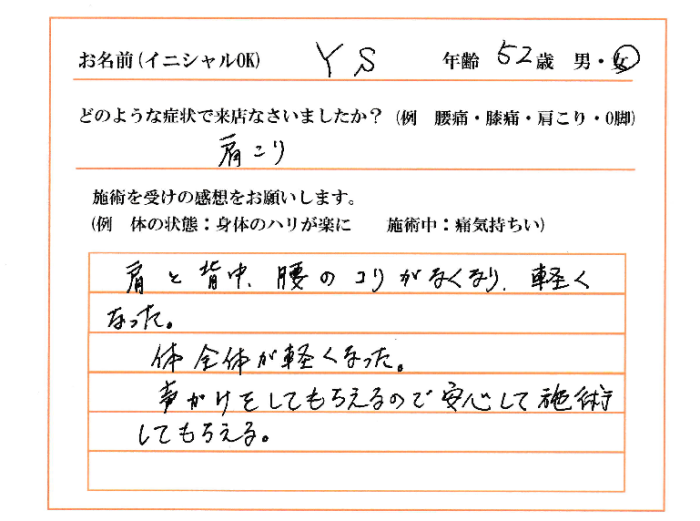 お名前(イニシャルOK) YS 年齢 52歳 男・女
どのような症状で来店なさいましたか？(例 腰痛・膝痛・肩こり・O脚)
肩こり
施術を受けの感想をお願いします。
(例 体の状態：身体のハリが楽に 施術中：痛気持ちい)
肩と背中、腰のコリがなくなり、軽く
なった。
体全体が軽くなった。
声がけをしてもらえるので安心して施術
してもらえる。